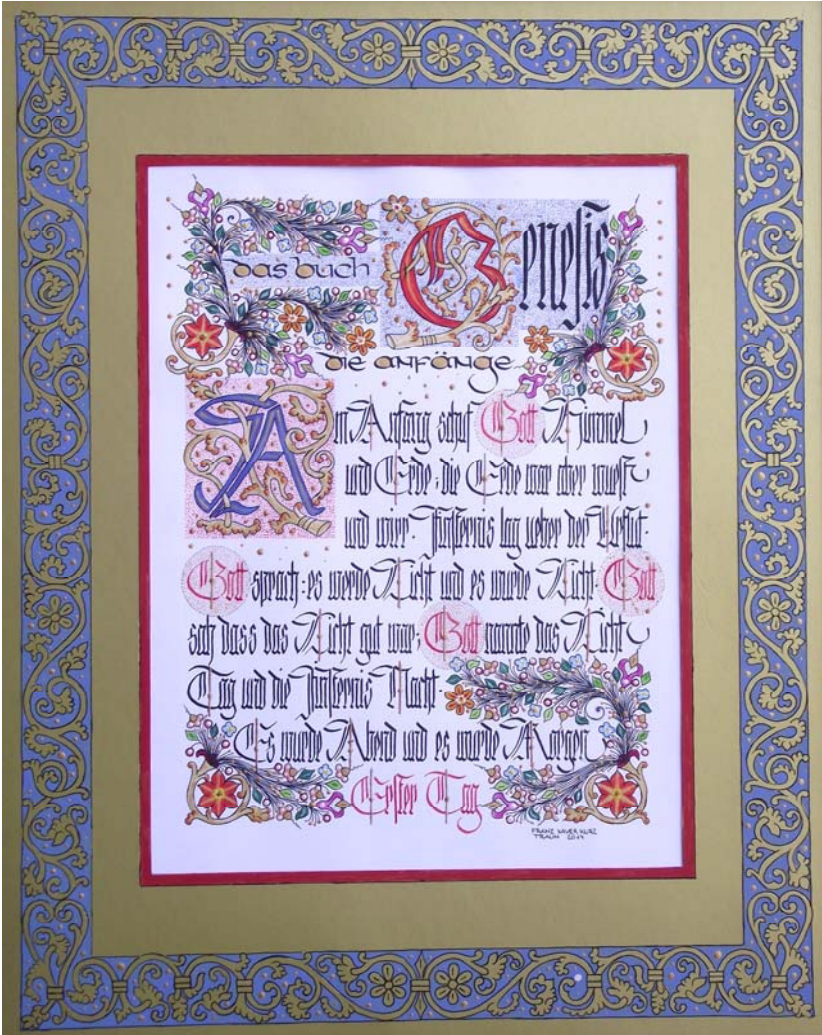 das buch Genesis
die anfänge
Am Anfang schuf Gott Himmel
und Erde; die Erde war aber wuest
und wirr. Finsternis lag ueber der Urflut.
Gott sprach: es werde Licht und es wurde Licht. Gott
sah dass das Licht gut war; Gott nannte das Licht
Tag und die Finsternis Nacht.
Es wurde Abend und es wurde Morgen
Erster Tag
FRANZ XAVER KURZ
TRAUN 2014